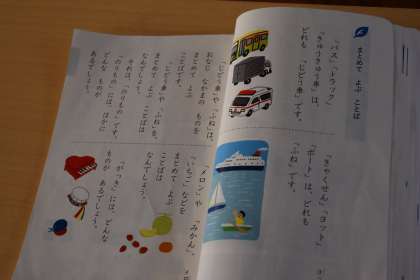 まとめて よぶ ことば
「バス」「トラック」
「きゅうきゅう車」は、
どれも 「じどう車」です。
「きゃくせん」「ヨット」
「ボート」は、どれも
「ふね」です。
「じどう車」や「ふね」は、
おなじ なかまの ものを
まとめて よぶ
ことばです。
「じどう車」や「ふね」を、
まとめて よぶ ことばは
なんでしょう。
それは、「のりもの」です。
「のりもの」には、ほかに
どんな ものが
あるでしょう。
「メロン」や 「みかん」、
「いちご」などを
まとめて よぶ
ことばは
なんでしょう。
「がっき」には、どんな
ものが あるでしょう。